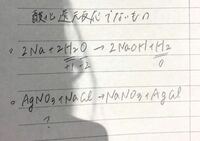 酸化還元反応でないもの
。2Na+2H₂O → 2NaOH+H₂
+1 -2 0
。AgNO₃+NaCl→NaNO₃+AgCl
?